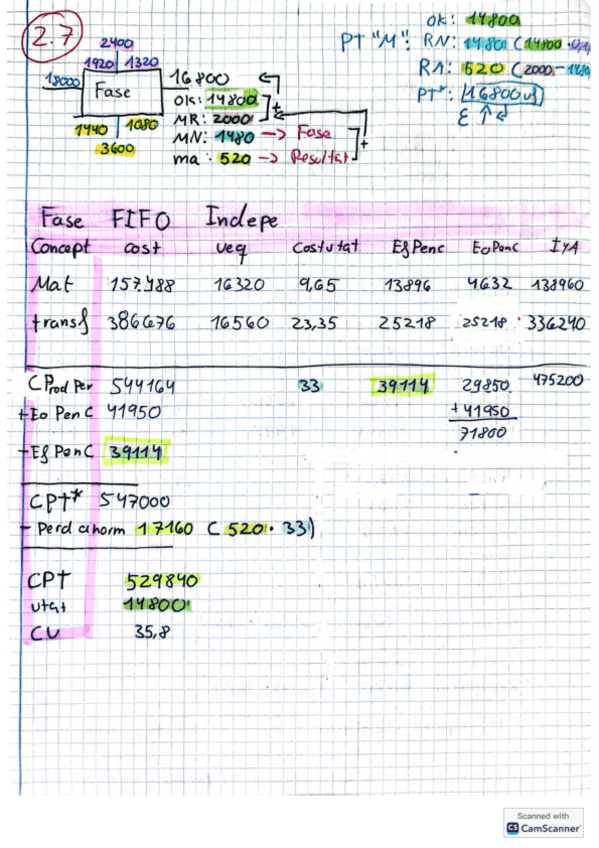 2.7
2400
1920 | 1320
18000
Fase
16800
OK: 14800
MR: 2000
MN: 1480 → Fase
ma: 520 → Resultat
1440 | 1080
3600
OK: 14800
PT "M": RN: 1480 (14800 · 0,1)
RA: 520 (2000 - 1480
PT*: 16800 u
Fase FIFO Indepe
Concept cost ueq Costutat Ef Penc Eo Penc IyA
Mat 157.488 16320 9,65 13896 4632 138960
transf 386676 16560 23,35 25218 25218 336240
C Prod Per 544164 33 39114 29850 475200
+ Eo Pen C 41950 + 41950
71800
- Ef Pen C 39114
CPt* 547000
- Perd anorm 17160 (520 · 33)
CPt 529840
utat 14800
CU 35,8
Scanned with
CS CamScanner